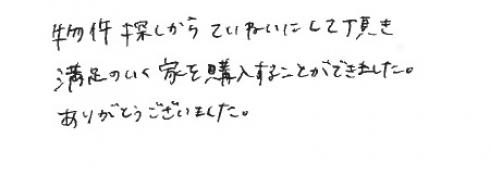 物件探しからていねいにして頂き
満足のいく家を購入することができました。
ありがとうございました。